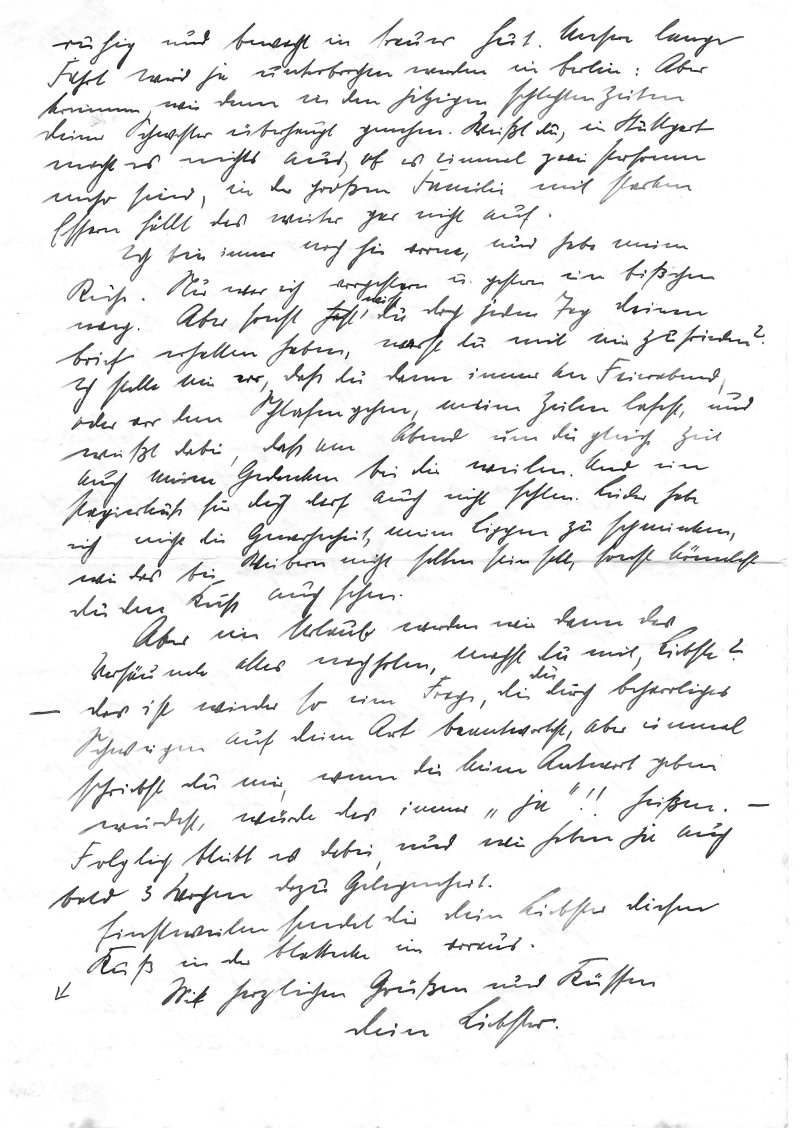 ruhig und bewacht in treuer Hut. Unsere lange
Fahrt wird ja unterbrochen werden in Berlin: Aber
kommen wir denn in den jetzigen schlechten Zeiten
deiner Schwester überhaupt genehm. Weißt du, in Stuttgart
macht es nichts aus, ob es einmal zwei Personen
mehr sind, in der großen Familie mit starken
Essern fällt das weiter gar nicht auf.
Ich bin immer noch hier vorne, und habe meine
Ruhe. Nur war ich vorgestern u. gestern ein bißchen
weg. Aber sonst hast du doch jeden Tag deinen
Brief erhalten haben, warst du mit mir zufrieden?
Ich stelle mir vor, daß du dann immer am Feierabend,
oder vor dem Schlafengehen, meine Zeilen liest, und
weißt dabei, daß am Abend um die gleiche Zeit
auch meine Gedanken bei dir weilen. Und ein
Papierkuß für dich darf auch nicht fehlen. Leider habe
ich nicht die Gewohnheit, meine Lippen zu schminken,
wie das bei Weibern nicht selten sein soll, sonst könntest
du den Kuß auch sehen.
Aber im Urlaub werden wir dann das
Versäumte alles nachholen, machst du mit, Liebste?
— das ist wieder so eine Frage, die du durch beharrliches
Schweigen auf deine Art beantwortest, aber einmal
schriebst du mir, wenn du keine Antwort geben
würdest, würde das immer „ja"!! heißen. —
Folglich bleibt es dabei, und wir haben ja auch
bald 3 Wochen dazu Gelegenheit.
Einstweilen sendet dir dein Liebster diesen
Kuß in der Blattecke im voraus.
Mit herzlichen Grüßen und Küssen
dein Liebster.